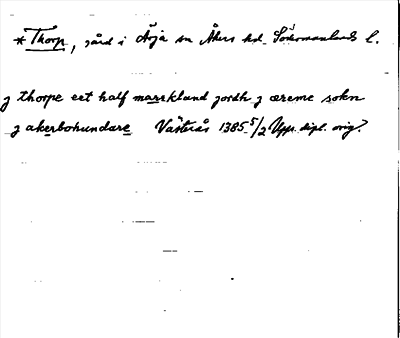 * Thorp, gård i Ärja sn Åkers hd. Södermanlands l.
j thorpe eet half marskland jordh j æreme sokn
j akerbohundare Västerås 1385 5/2 Upps. dipl. orig.